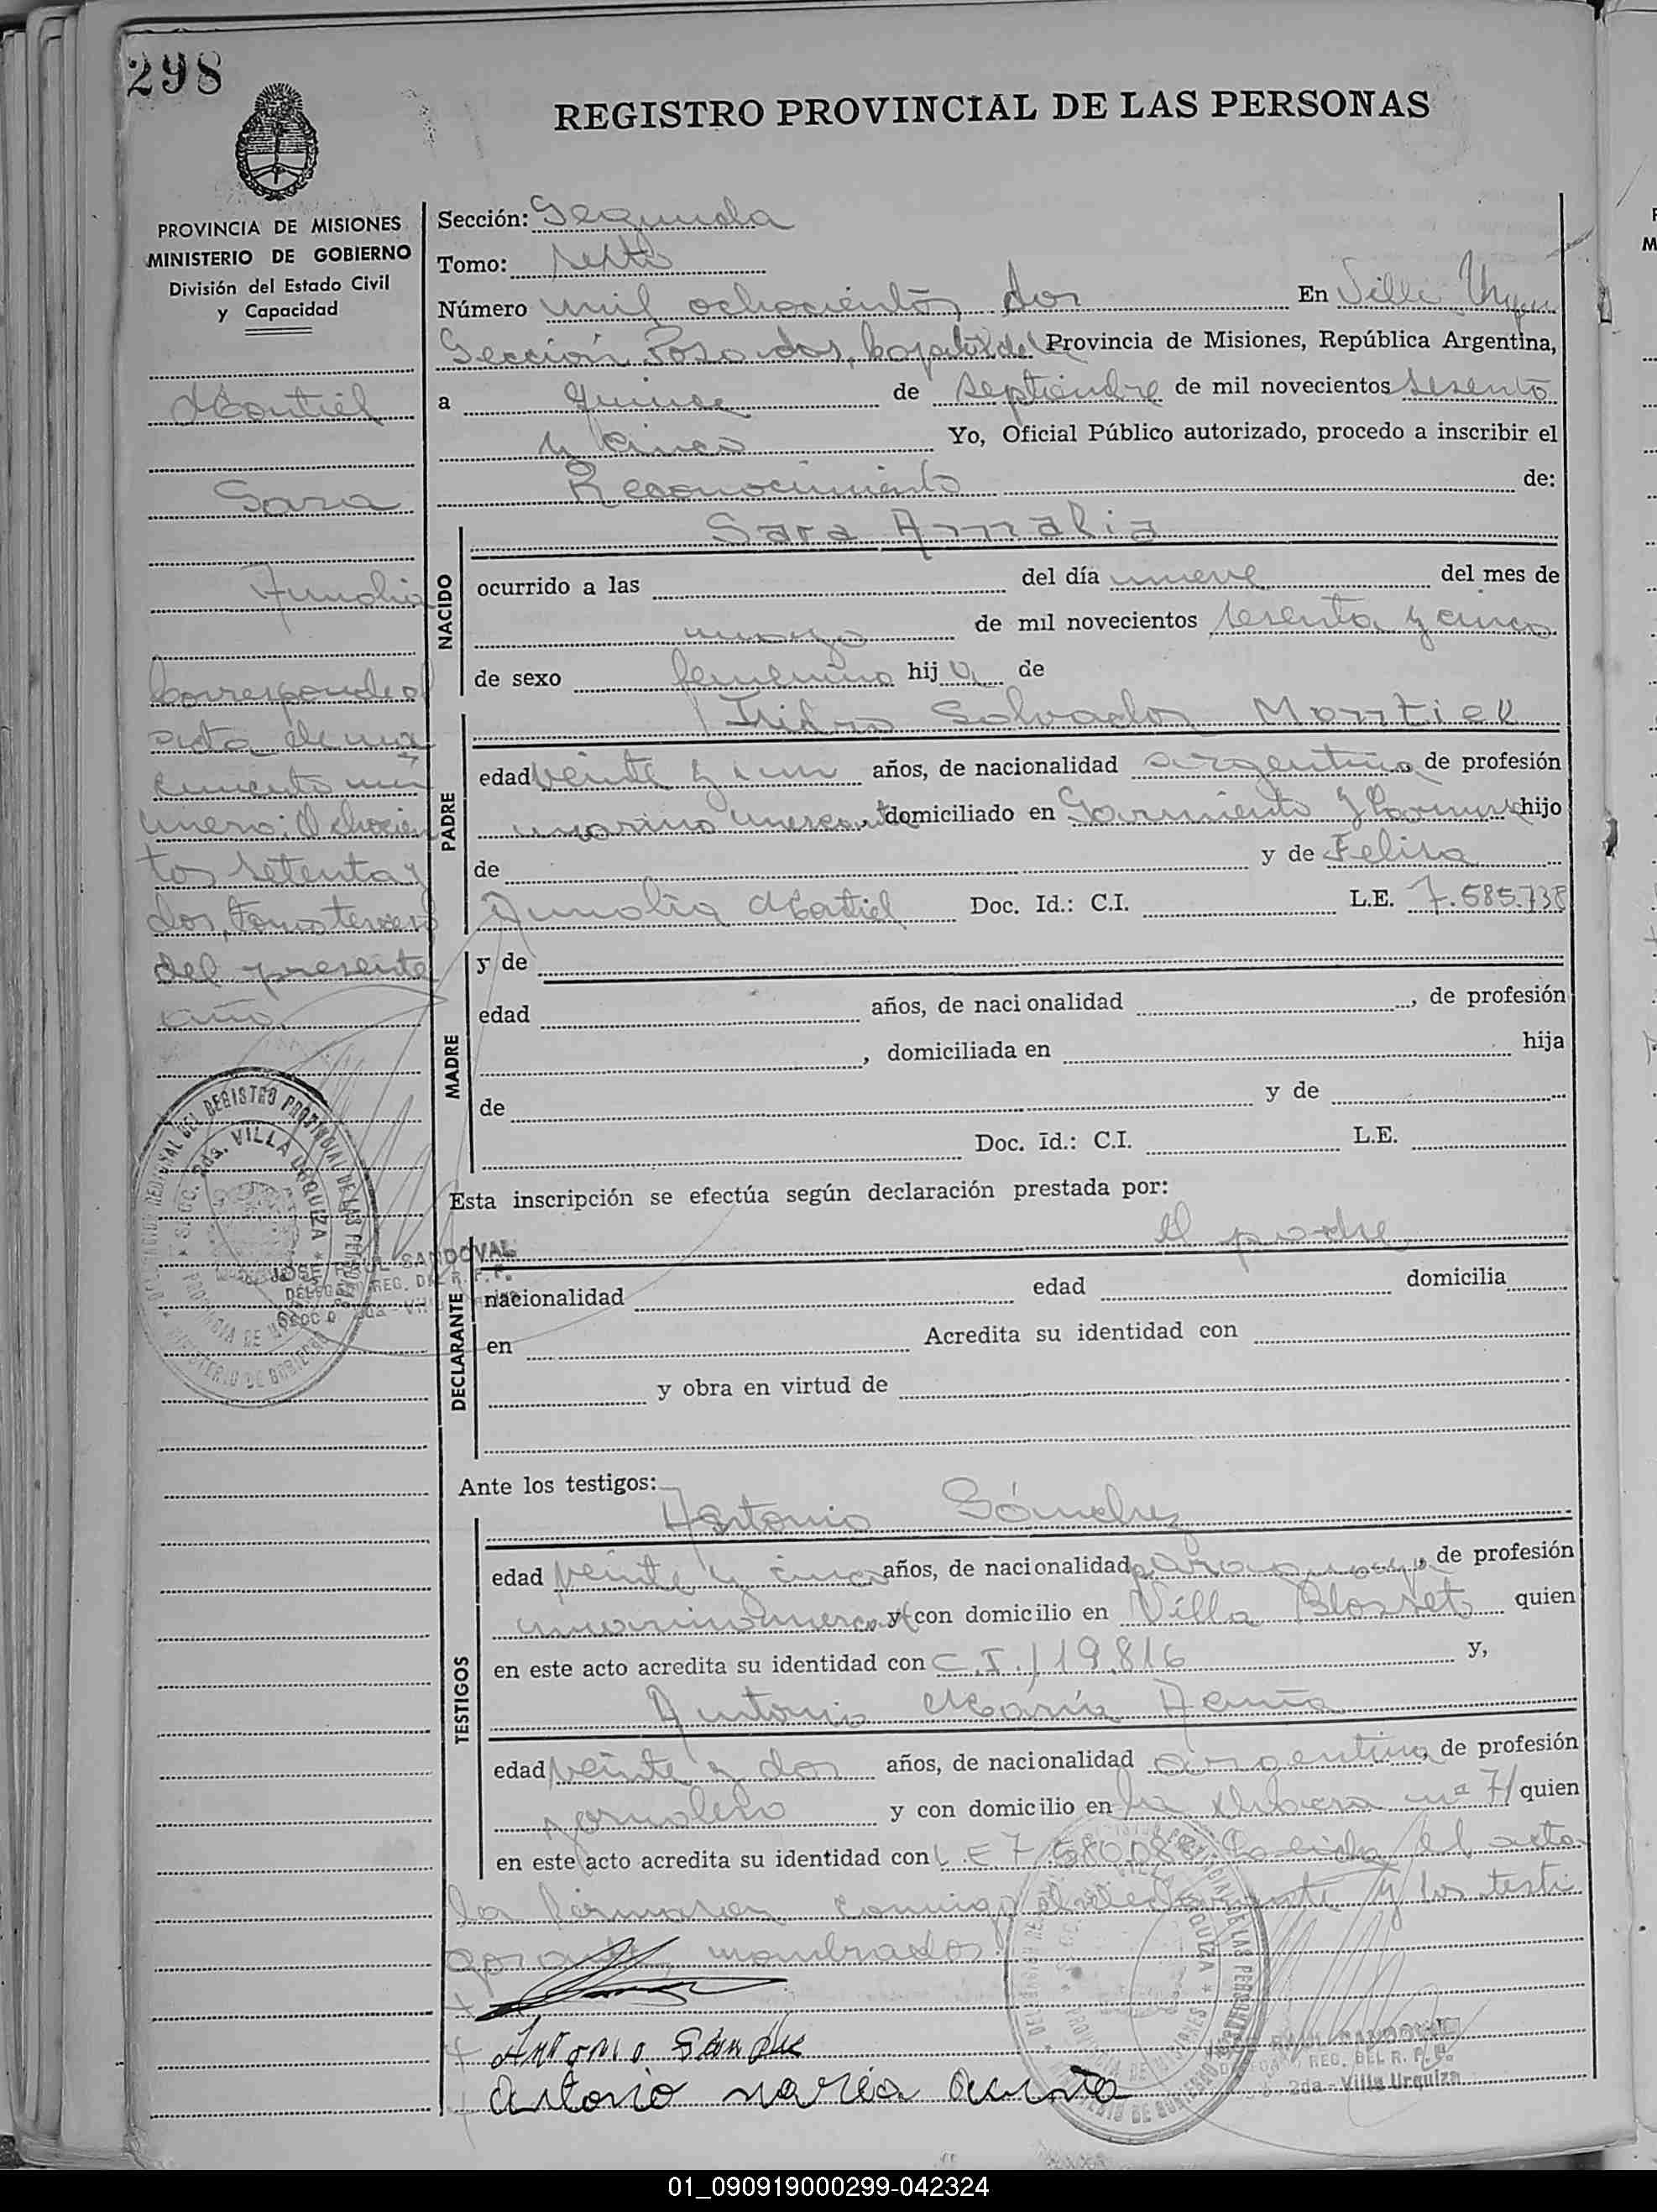 298
REGISTRO PROVINCIAL DE LAS PERSONAS
PROVINCIA DE MISIONES
MINISTERIO DE GOBIERNO
División del Estado Civil
y Capacidad
Montiel
Sara
Amalia
Corresponde al
acta de na
cimiento nú
mero: Ochocien
tos setenta y
dos, Tomo tercero
del presente
año.
Sección: Segunda
Tomo: sexto
Número mil ochocientos dos En Villa Urquiza
Sección Posadas, Capital de la Provincia de Misiones, República Argentina,
a quince de septiembre de mil novecientos sesenta
y cinco Yo, Oficial Público autorizado, procedo a inscribir el
Reconocimiento de:
NACIDO
Sara Amalia
ocurrido a las del día nueve del mes de
mayo de mil novecientos sesenta y cinco
de sexo femenino hija de
PADRE
Isidro Salvador Montiel
edad veinte y un años, de nacionalidad argentina, de profesión
marino mercante domiciliado en Sarmiento y hijo
de y de Felisa
Amalia Montiel Doc. Id.: C.I. L.E. 7.585.738
MADRE
y de
edad años, de nacionalidad , de profesión
, domiciliada en hija
de y de
Doc. Id.: C.I. L.E.
Esta inscripción se efectúa según declaración prestada por:
DECLARANTE
el padre
nacionalidad edad domicilia
en Acredita su identidad con
y obra en virtud de
Ante los testigos:
TESTIGOS
Antonio Sánchez
edad veinte y cinco años, de nacionalidad paraguaya, de profesión
marino mercante y con domicilio en Villa Blosset quien
en este acto acredita su identidad con C.I./19.816 y,
Antonio María Acuña
edad veinte y dos años, de nacionalidad argentina, de profesión
jornalero y con domicilio en La nº 71 quien
en este acto acredita su identidad con L E 7.580088 Leída el acta
la firmaron conmigo el declarante y los testi
gos nombrados.
Antonio Sanchez
Antonio maria acuña
DELEGACION REGIONAL DEL REGISTRO PROVINCIAL DE LAS PERSONAS
SECC. 2da. VILLA URQUIZA
PROVINCIA DE MISIONES
MINISTERIO DE GOBIERNO
JOSE RAUL SANDOVAL
DELEGADO REG. DEL R. P. P.
2da.-Villa Urquiza
01_090919000299-042324